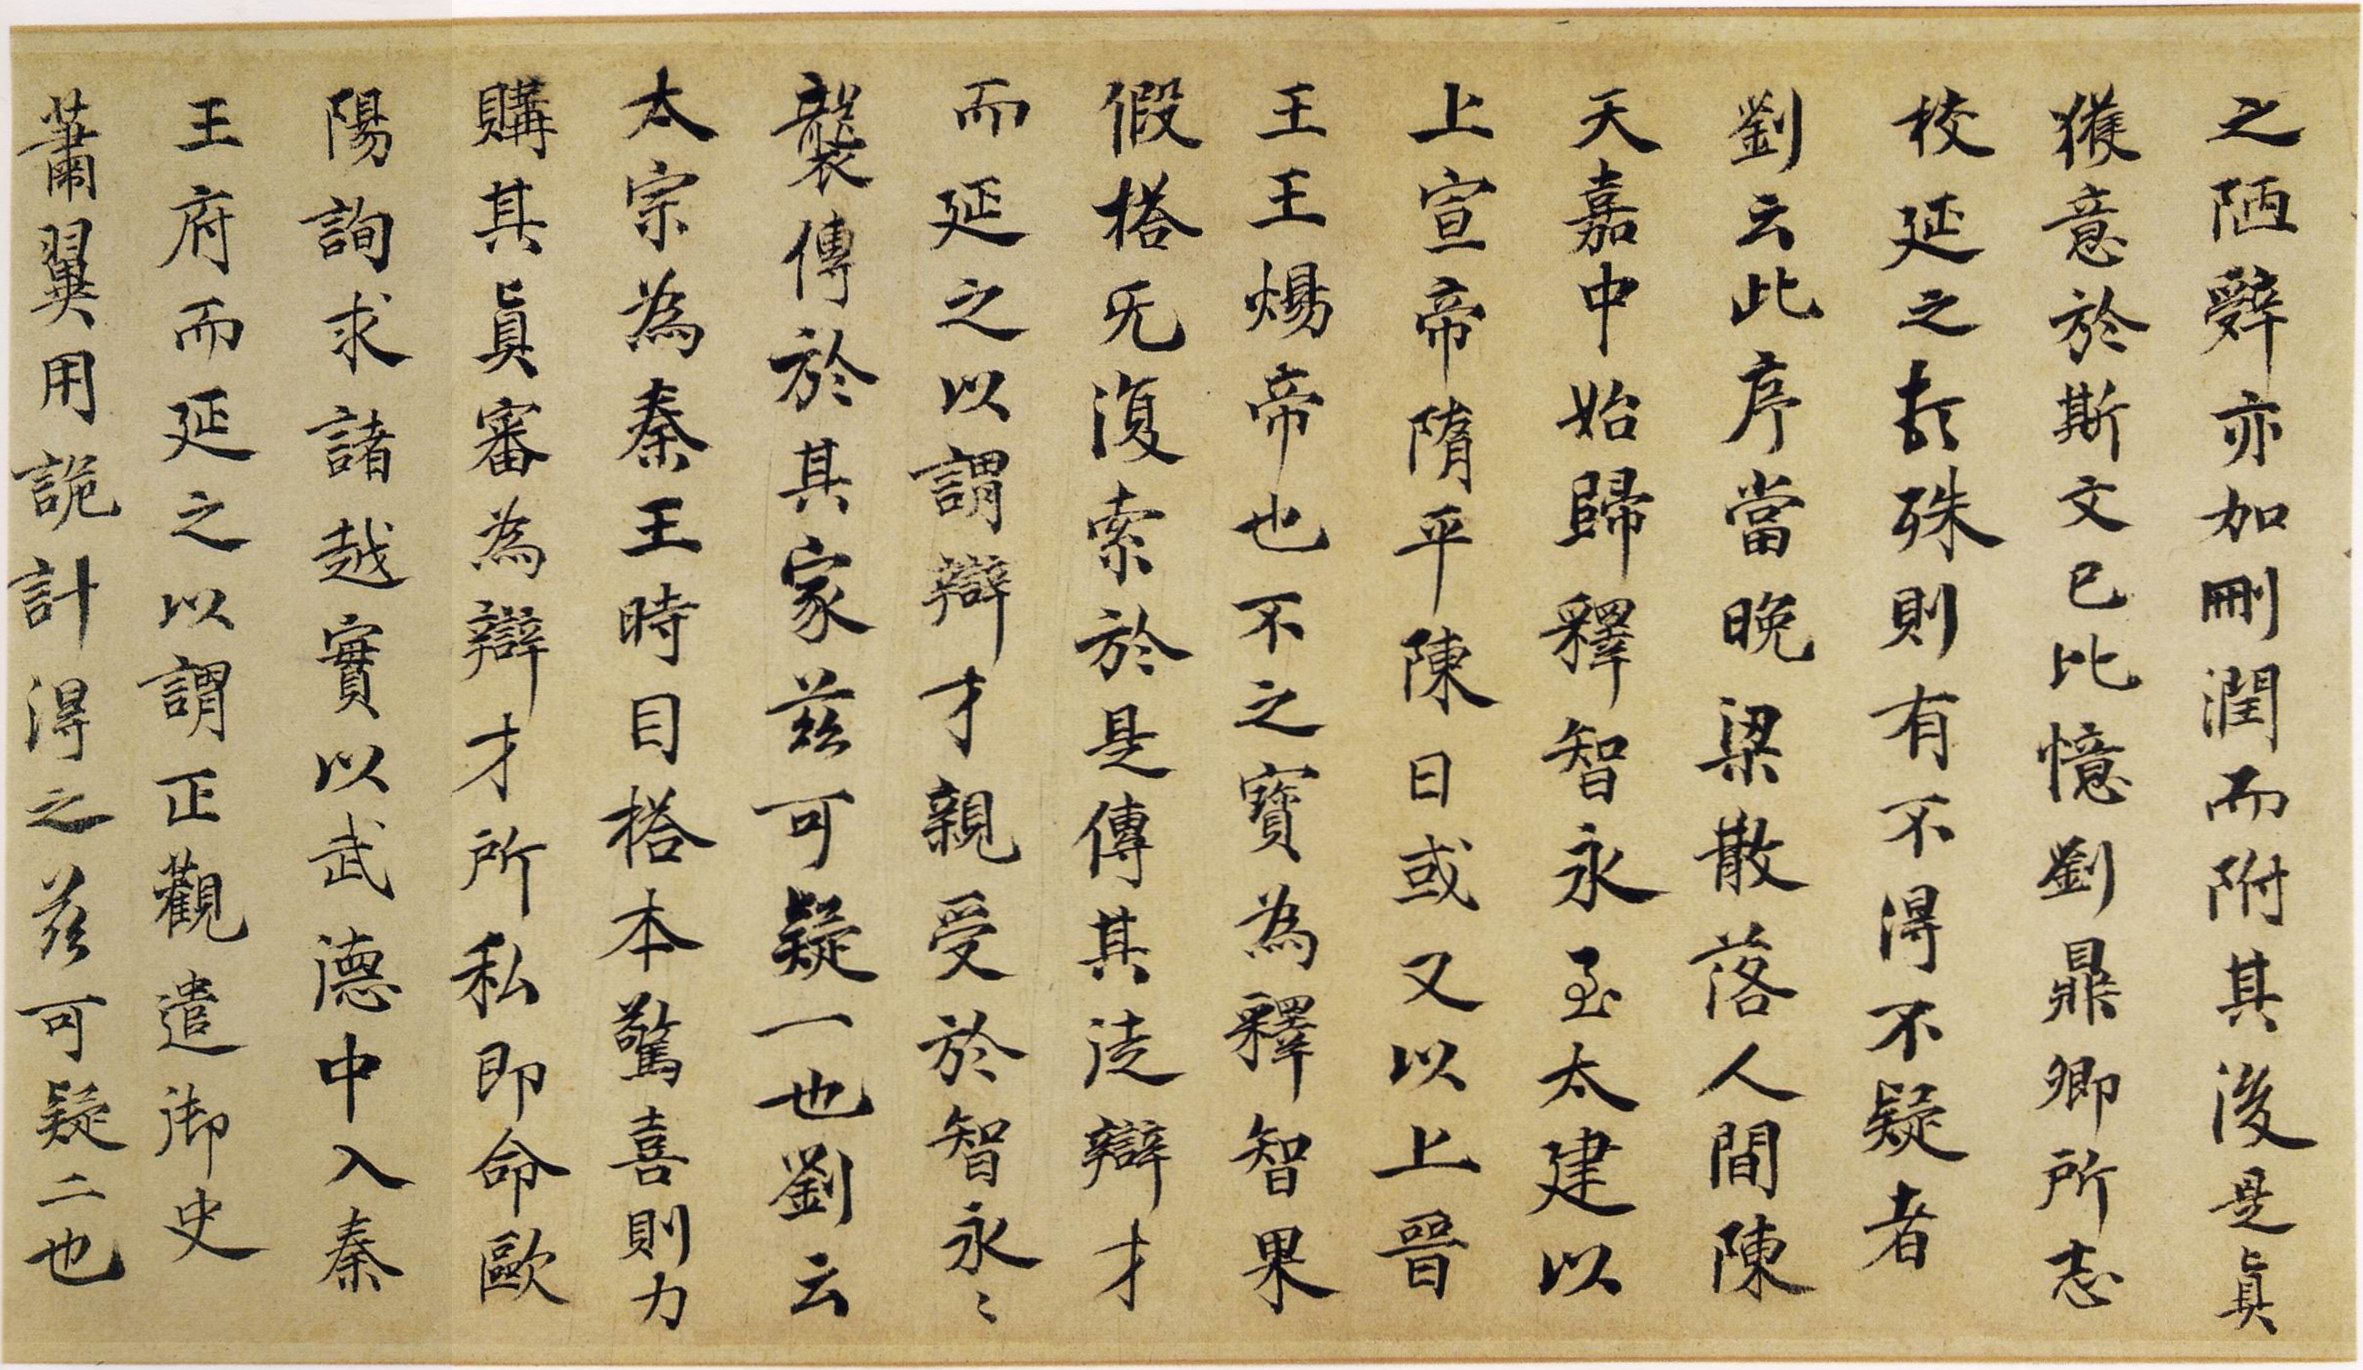 之陋辤亦加刪潤而附其後是真
獲意於斯文已比憶劉鼎卿所志
校延之所殊則有不得不疑者
劉云此序當晚梁散落人間陳
天嘉中始歸釋智永至太建以
上宣帝隋平陳日或又以上晉
王王煬帝也不之寶為釋智果
假榙旡復索於是傳其徒辯才
而延之以謂辯才親受於智永〻
襲傳於其家茲可疑一也劉云
太宗為秦王時目榙本驚喜則力
購其真審為辯才所私即命歐
陽詢求諸越實以武德中入秦
王府而延之以謂正觀遣御史
蕭翼用詭計得之茲可疑二也